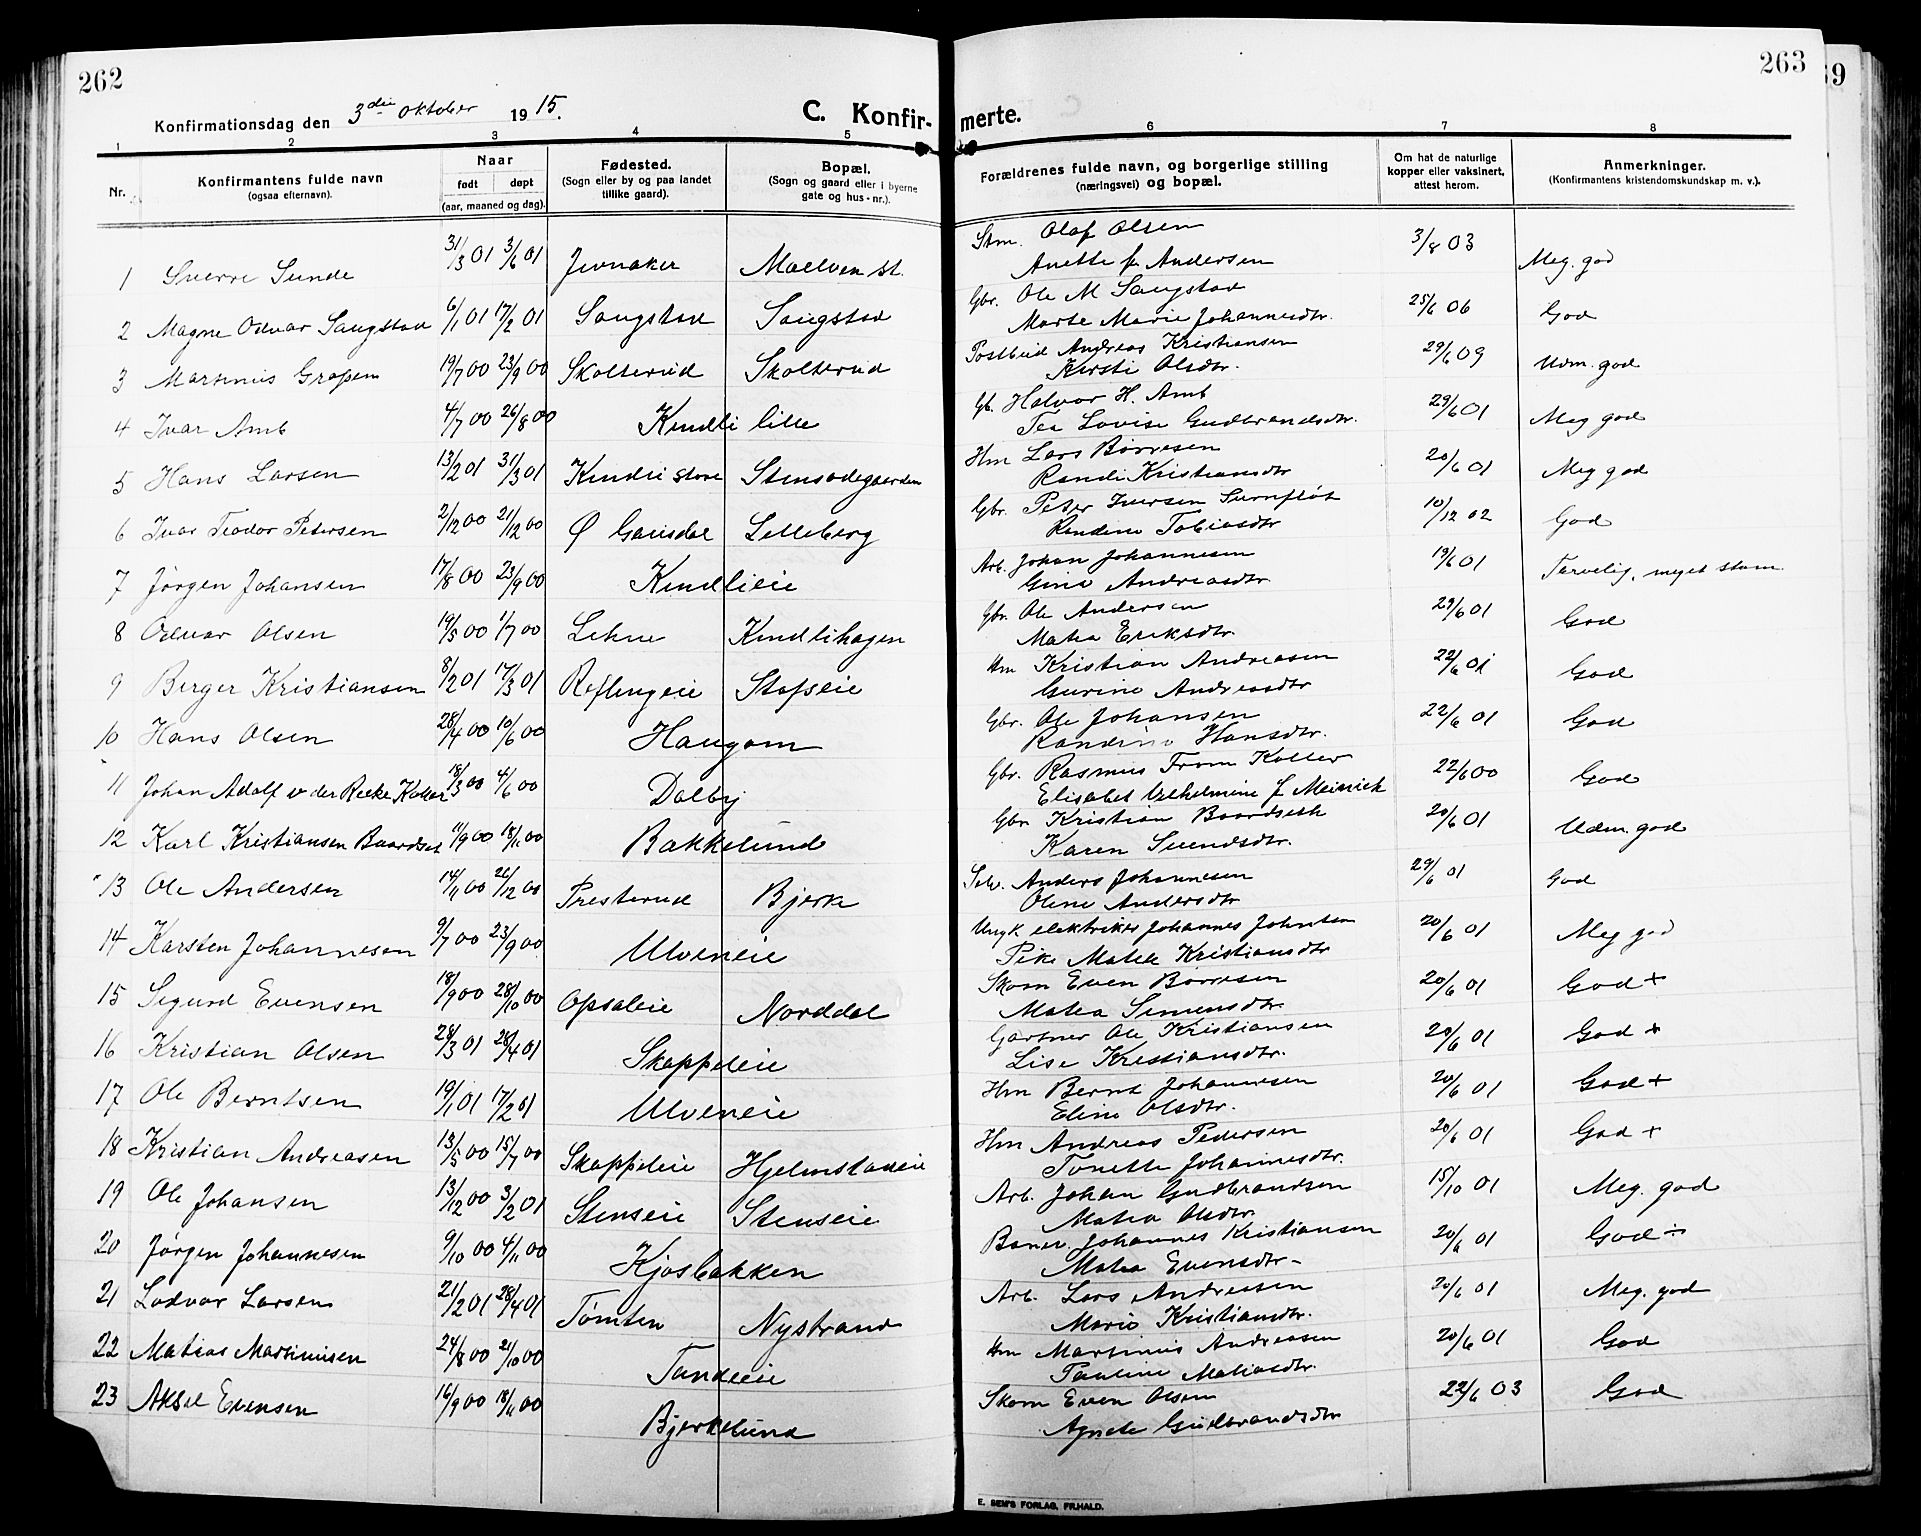 262
263
69
Konfirmationsdag den 3die oktober 1915.
C. Konfir-merte.
1 2 3 4 5 6 7 8
Nr.
Konfirmantens fulde navn
(ogsaa efternavn).
Naar
født døpt
(aar, maaned og dag).
Fødested.
(Sogn eller by og paa landet
tillike gaard).
Bopæl.
(Sogn og gaard eller i byerne
gate og hus-nr.).
Forældrenes fulde navn, og borgerlige stilling
(næringsvei) og bopæl.
Om hat de naturlige
kopper eller vaksinert,
attest herom.
Anmerkninger.
(Konfirmantens kristendomskundskap m. v.).
1 Sverre Sunde 31/3 01 3/6 01 Jevnaker Moelven st. Stm. Olaf Olsen 3/8 03 Meg. god
Anette f. Andersen
2 Magne Odvar Saugstad 6/1 01 17/2 01 Saugstad Saugstad Gbr. Ole M Saugstad 25/6 06 God
Marte Marie Johannesdtr.
3 Martinius Grøpen 19/7 00 23/9 00 Skolterud Skolterud Postbud Andreas Kristiansen 29/6 09 Udm. god
Kersti Olsdtr.
4 Ivar Amb 4/7 00 26/8 00 Kindli lille Gb. Halvor H. Amb 29/6 01 Meg god
Tea Lovise Gudbrandsdtr.
5 Hans Larsen 13/2 01 31/3 01 Kindli store Stensodegaarden Hm Lars Børresen 20/6 01 Meg god
Randi Kristiansdtr
6 Ivar Teodor Petersen 2/12 00 21/12 00 Ø Gausdal Lilleberg Gbr. Peter Iversen Surnfløt 10/12 02 God
Randine Tobiasdtr
7 Jørgen Johansen 17/8 00 23/9 00 Kindlieie Arb. Johan Johannesen 19/6 01 Tarvelig, meget stam
Gina Andreasdtr
8 Odvar Olsen 19/5 00 1/7 00 Lehne Kindlihagen Gbr. Ole Andersen 29/6 01 God
Matea Eriksdtr.
9 Berger Kristiansen 8/2 01 17/3 01 Reflengeie Stafseie Hm Kristian Andreasen 22/6 01 God
Gurine Andreasdtr
10 Hans Olsen 28/4 00 10/6 00 Haugom Gbr. Ole Johansen 22/6 01 God
Randine Hansdtr.
11 Johan Adolf v der Recke Koller 18/3 00 4/6 00 Dalby Gbr. Rasmus From Koller 22/6 00 God
Elisabet Vilhelmine f Meinich
12 Karl Kristiansen Baardset 11/9 00 18/11 00 Bakkelund Gbr Kristian Baardseth 20/6 01 Udm. god
Karen Svendsdtr.
13 Ole Andersen 14/11 00 26/12 00 Presterud Bjerk Selv. Anders Johannesen 29/6 01 God
Oline Andersdtr
14 Karsten Johannesen 9/7 00 23/9 00 Ulveneie Ungk. elektriker Johannes Johnsen 20/6 01 Meg god
Pike Matea Kristiansdtr
15 Sigurd Evensen 18/9 00 28/10 00 Opsaleie Norddal Skom Even Børresen 20/6 01 God +
Matea Simensdtr.
16 Kristian Olsen 28/3 01 28/4 01 Skappeleie Gartner Ole Kristiansen 20/6 01 God +
Lise Kristiansdtr.
17 Ole Berntsen 19/1 01 17/2 01 Ulveneie Hm Bernt Johannesen 20/6 01 God +
Eline Olsdtr.
18 Kristian Andreasen 13/5 00 15/7 00 Skappeleie Hjelmstadeie Hm Andreas Pedersen 20/6 01 God +
Tonette Johannesdtr.
19 Ole Johansen 13/12 00 3/2 01 Stenseie Stenseie Arb. Johan Gudbrandsen 15/10 01 Meg. god
Matea Olsdtr.
20 Jørgen Johannesen 9/10 00 4/11 00 Kjosbakken Baner Johannes Kristiansen 20/6 01 God ÷
Matea Evensdtr-
21 Lodvar Larsen 21/2 01 28/4 01 Tømten Nystrand Arb. Lars Andreasen 20/6 01 Meg. god
Marie Kristiansdtr.
22 Matias Martinusen 24/8 00 21/10 00 Tandeeie Hm Martinius Andreasen 20/6 01 God
Pauline Matiasdtr.
23 Aksel Evensen 16/9 00 18/11 00 Bjerkelund Skom Even Olsen 22/6 03 God
Agnete Gudbrandsdtr
E. SEM'S FORLAG, FR.HALD.